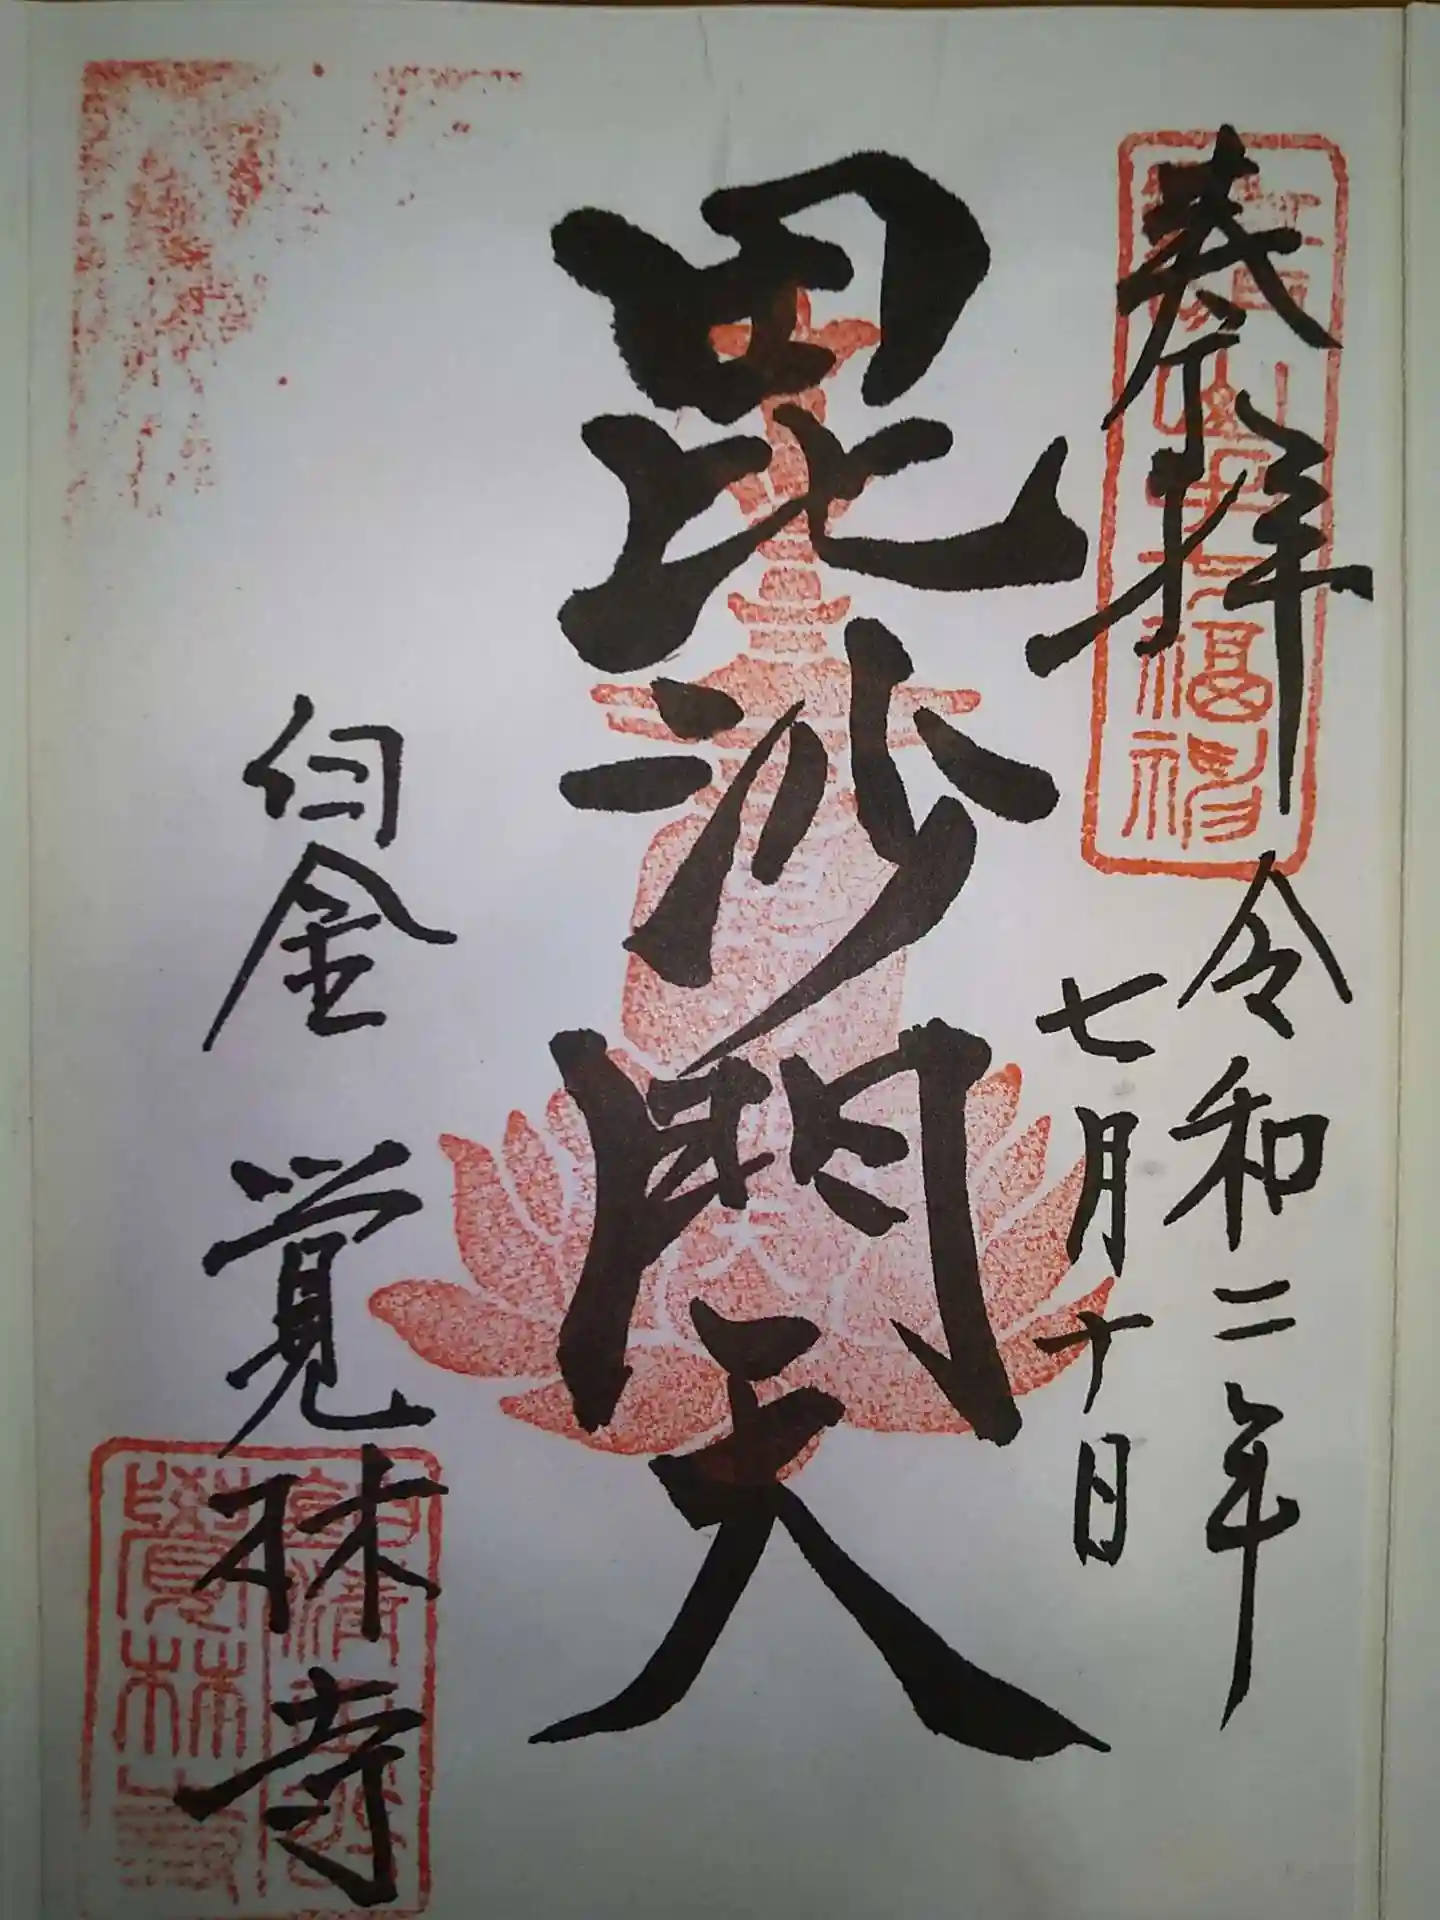 奉拝
令和二年
七月十日
毘沙門天
白金 覚林寺
覺林寺